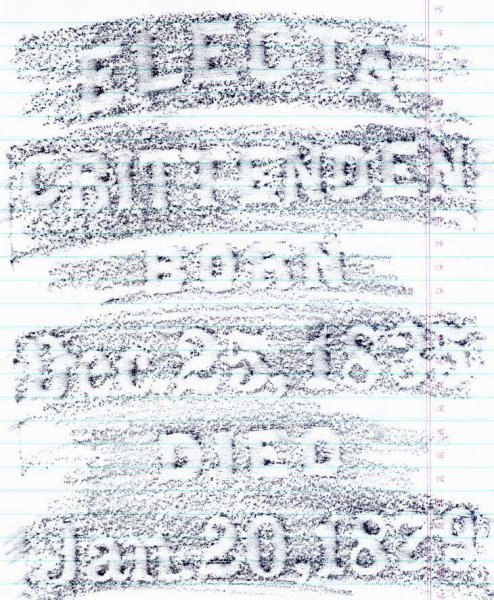 ELECTA
CRITTENDEN
BORN
Dec. 25,
DIED
Jan. 20,